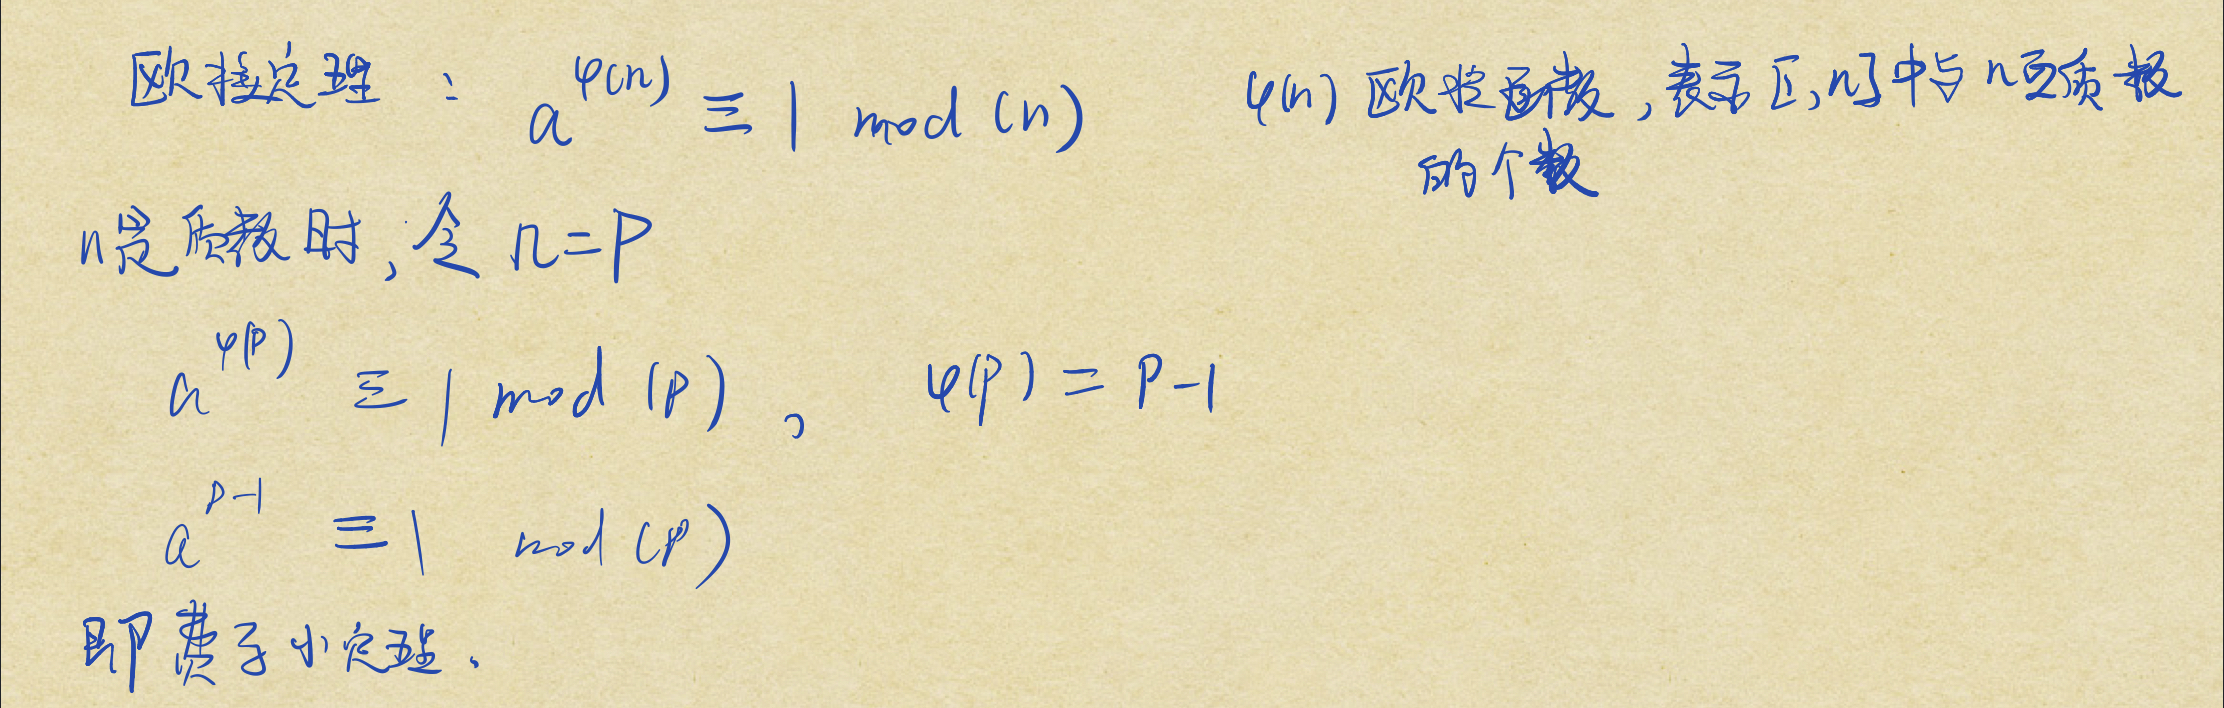 欧拉定理: a^φ(n) ≡ 1 mod (n) φ(n) 欧拉函数,表示[1,n]中与n互质数
的个数
n是质数时,令 n=P
a^φ(P) ≡ 1 mod (P) , φ(P) = P-1
a^P-1 ≡ 1 mod (P)
即费马小定理.